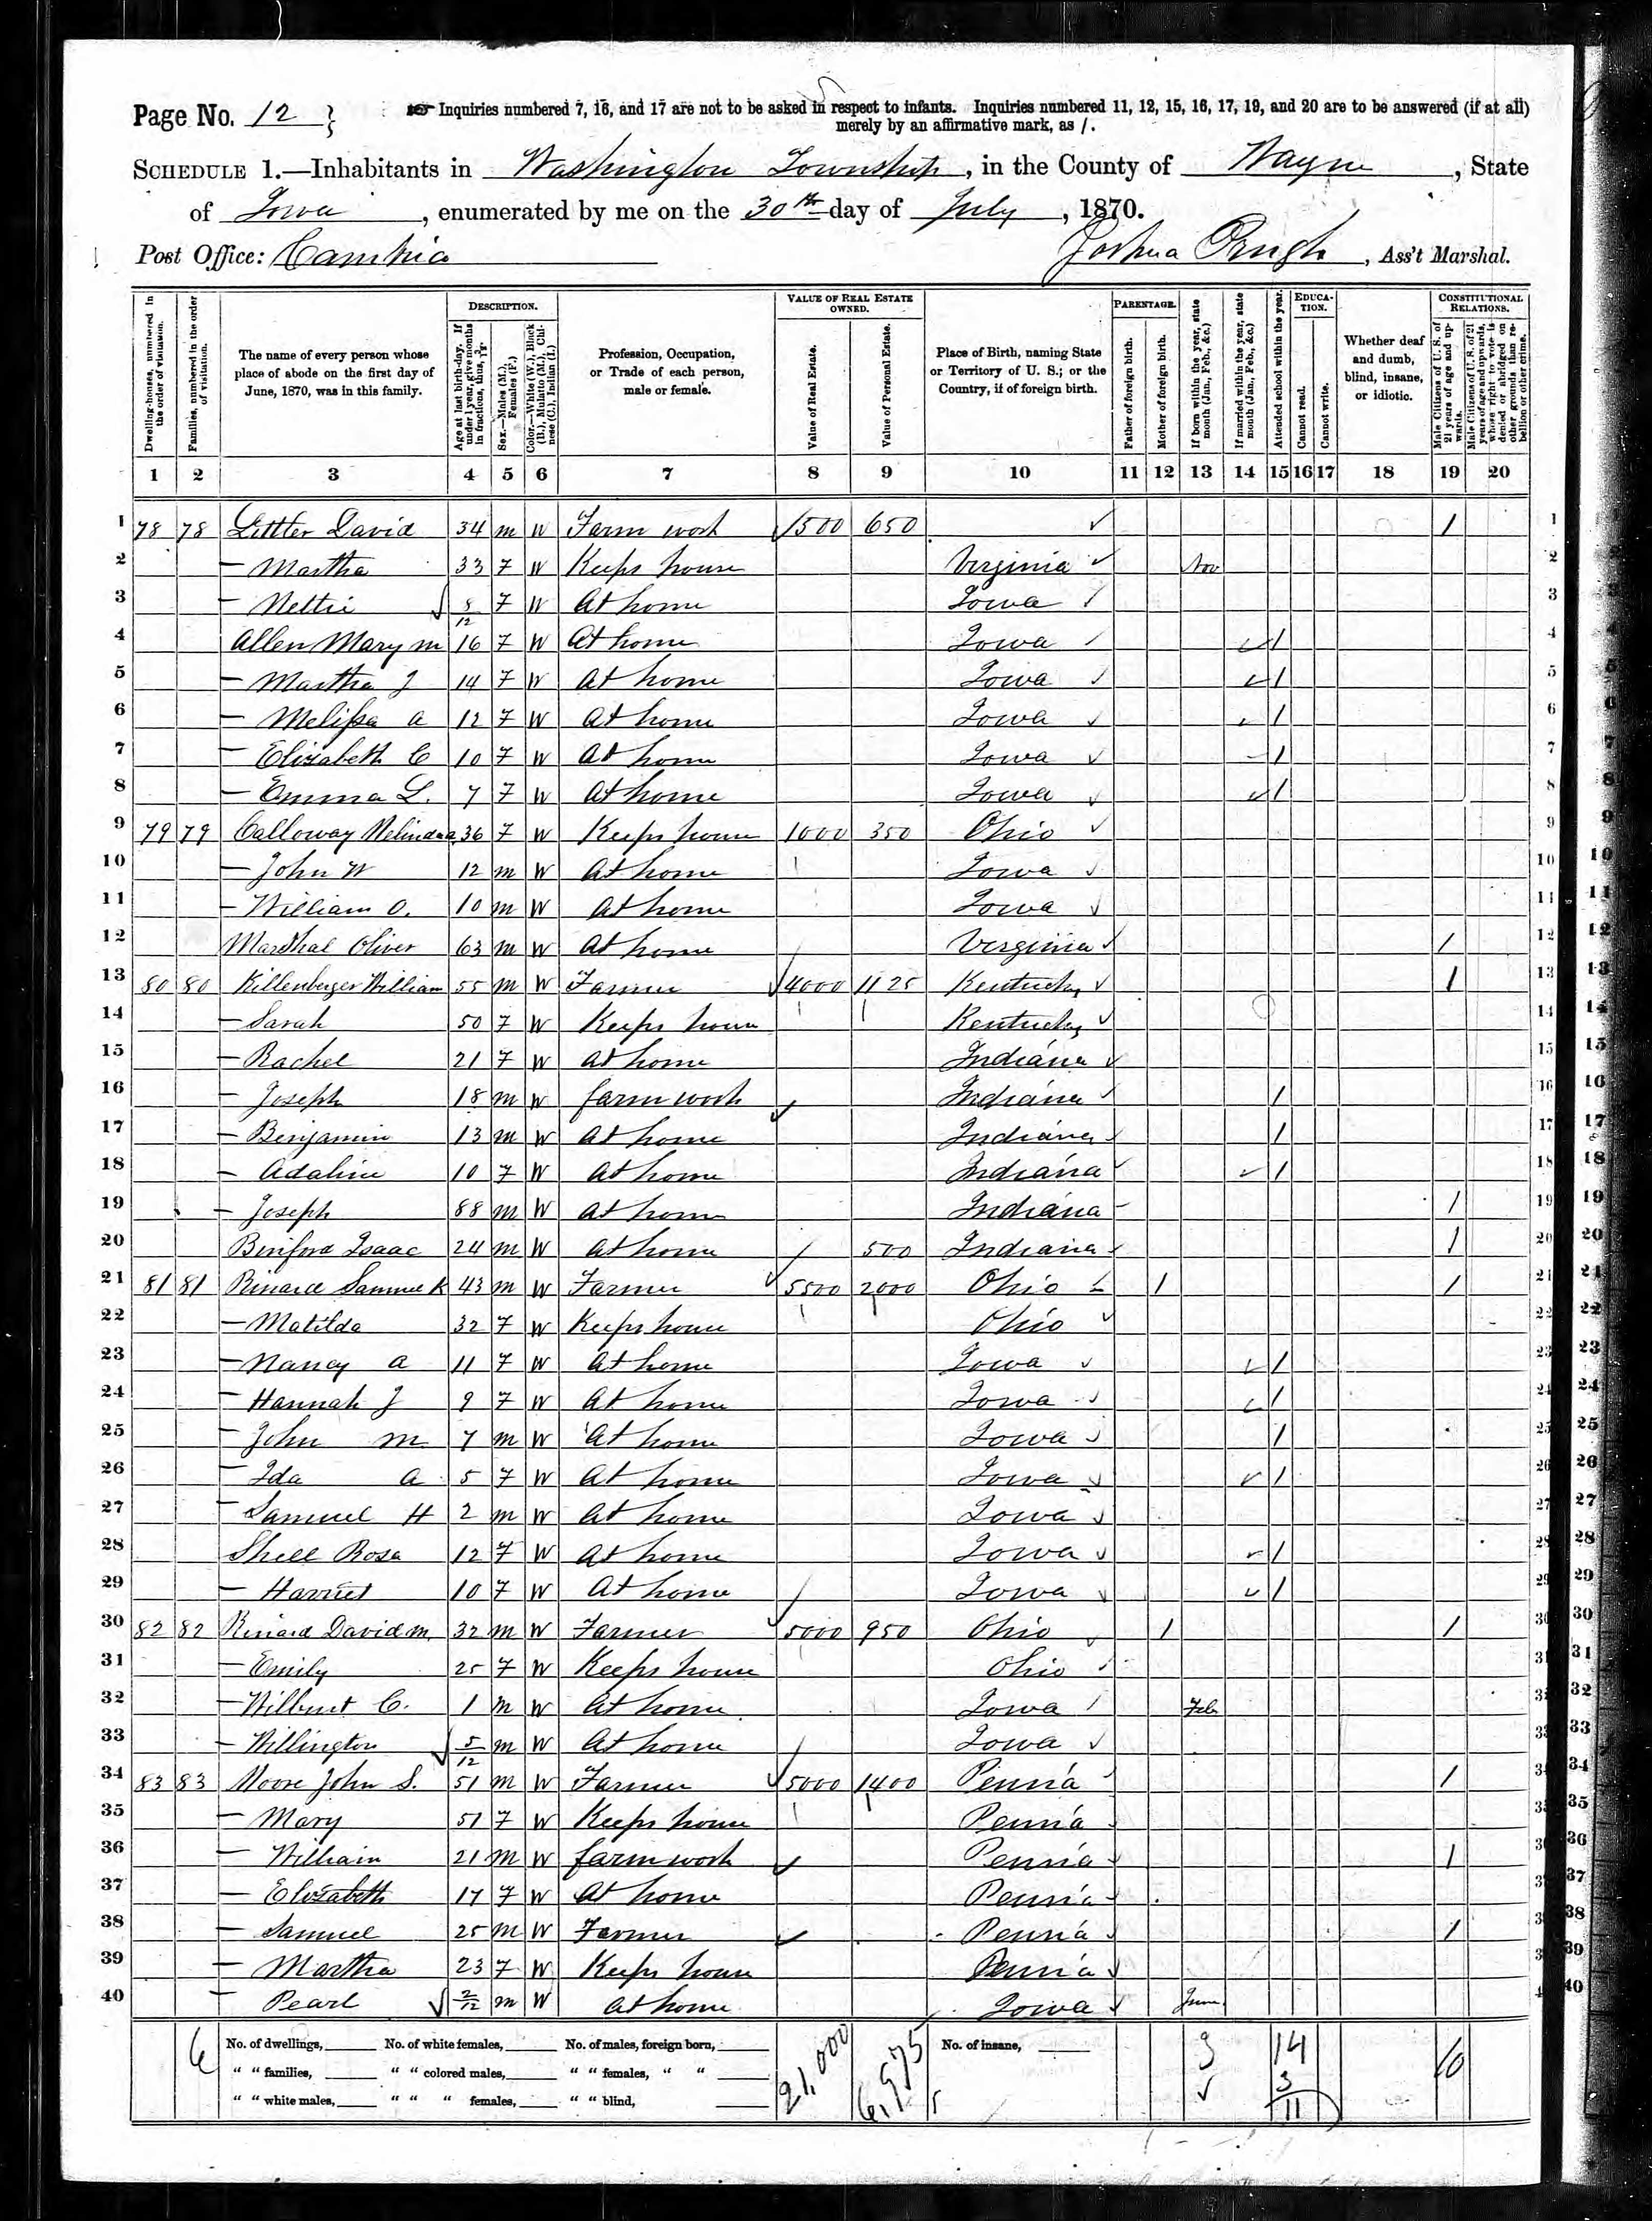 Page No. 12 } Inquiries numbered 7, 16, and 17 are not to be asked in respect to infants. Inquiries numbered 11, 12, 15, 16, 17, 19, and 20 are to be answered (if at all)
merely by an affirmative mark, as /.
SCHEDULE 1.—Inhabitants in Washington Township, in the County of Wayne, State
of Iowa, enumerated by me on the 30th day of July, 1870.
Post Office: Cambria Joshua Pugh, Ass't Marshal.
Dwelling-houses, numbered in the order of visitation.
Families, numbered in the order of visitation.
The name of every person whose place of abode on the first day of June, 1870, was in this family.
DESCRIPTION.
Age at last birth-day. If under 1 year, give months in fractions, thus, 3/12.
Sex.—Males (M.), Females (F.)
Color.—White (W.), Black (B.), Mulatto (M.), Chinese (C.), Indian (I.)
Profession, Occupation, or Trade of each person, male or female.
VALUE OF REAL ESTATE OWNED.
Value of Real Estate.
Value of Personal Estate.
Place of Birth, naming State or Territory of U. S.; or the Country, if of foreign birth.
PARENTAGE.
Father of foreign birth.
Mother of foreign birth.
If born within the year, state month (Jan., Feb., &c.)
If married within the year, state month (Jan., Feb., &c.)
Attended school within the year.
EDUCATION.
Cannot read.
Cannot write.
Whether deaf and dumb, blind, insane, or idiotic.
CONSTITUTIONAL RELATIONS.
Male Citizens of U. S. of 21 years of age and upwards.
Male Citizens of U. S. of 21 years of age and upwards, whose right to vote is denied or abridged on other grounds than rebellion or other crime.
1 2 3 4 5 6 7 8 9 10 11 12 13 14 15 16 17 18 19 20
1 78 78 Littler David 34 m W Farm work 1500 650 / 1
2 — Martha 33 F W Keeps house Virginia Nov 2
3 — Nettie 8/12 F W At home Iowa 3
4 Allen Mary M 16 F W At home Iowa / 4
5 — Martha J 14 F W At home Iowa / 5
6 — Melissa A 12 F W At home Iowa / 6
7 — Elizabeth C 10 F W At home Iowa / 7
8 — Emma L. 7 F W At home Iowa / 8
9 79 79 Calloway Melinda 36 F W Keeps house 1000 350 Ohio 9
10 — John W 12 m W At home Iowa 10
11 — William O. 10 m W At home Iowa 11
12 Marshal Oliver 63 m W At home Virginia / 12
13 80 80 Killenberger William 55 m W Farmer 4000 1125 Kentucky / 13
14 — Sarah 50 F W Keeps house Kentucky 14
15 — Rachel 21 F W At home Indiana 15
16 — Joseph 18 m W farm work Indiana / 16
17 — Benjamin 13 m W At home Indiana / 17
18 — Adaline 10 F W At home Indiana / 18
19 — Joseph 88 m W At home Indiana / 19
20 Binford Isaac 24 m W At home 500 Indiana / 20
21 81 81 Rinard Samuel K 43 m W Farmer 5500 2000 Ohio / / 21
22 — Matilda 32 F W Keeps house Ohio 22
23 — Nancy A 11 F W At home Iowa / 23
24 — Hannah J 9 F W At home Iowa / 24
25 — John M 7 m W At home Iowa / 25
26 — Ida A 5 F W At home Iowa / 26
27 — Samuel H 2 m W At home Iowa 27
28 Shell Rosa 12 F W At home Iowa / 28
29 — Harriet 10 F W At home Iowa / 29
30 82 82 Rinard David M. 32 m W Farmer 5000 950 Ohio / / 30
31 — Emily 25 F W Keeps house Ohio 31
32 — Wilburt C. 1 m W At home Iowa Feb 32
33 — Willington 5/12 m W At home Iowa 33
34 83 83 Moore John S. 51 m W Farmer 5000 1400 Penn'a / 34
35 — Mary 51 F W Keeps house Penn'a 35
36 — William 21 m W farm work Penn'a / 36
37 — Elizabeth 17 F W At home Penn'a 37
38 — Samuel 25 m W Farmer Penn'a / 38
39 — Martha 23 F W Keeps house Penn'a 39
40 — Pearl 2/12 m W At home Iowa June 40
6 No. of dwellings, No. of white females, No. of males, foreign born, 21,000 6,975 No. of insane, 3 14 10
" " families, " " colored males, " " females, " " 3
" " white males, " " " females, " " blind, 11